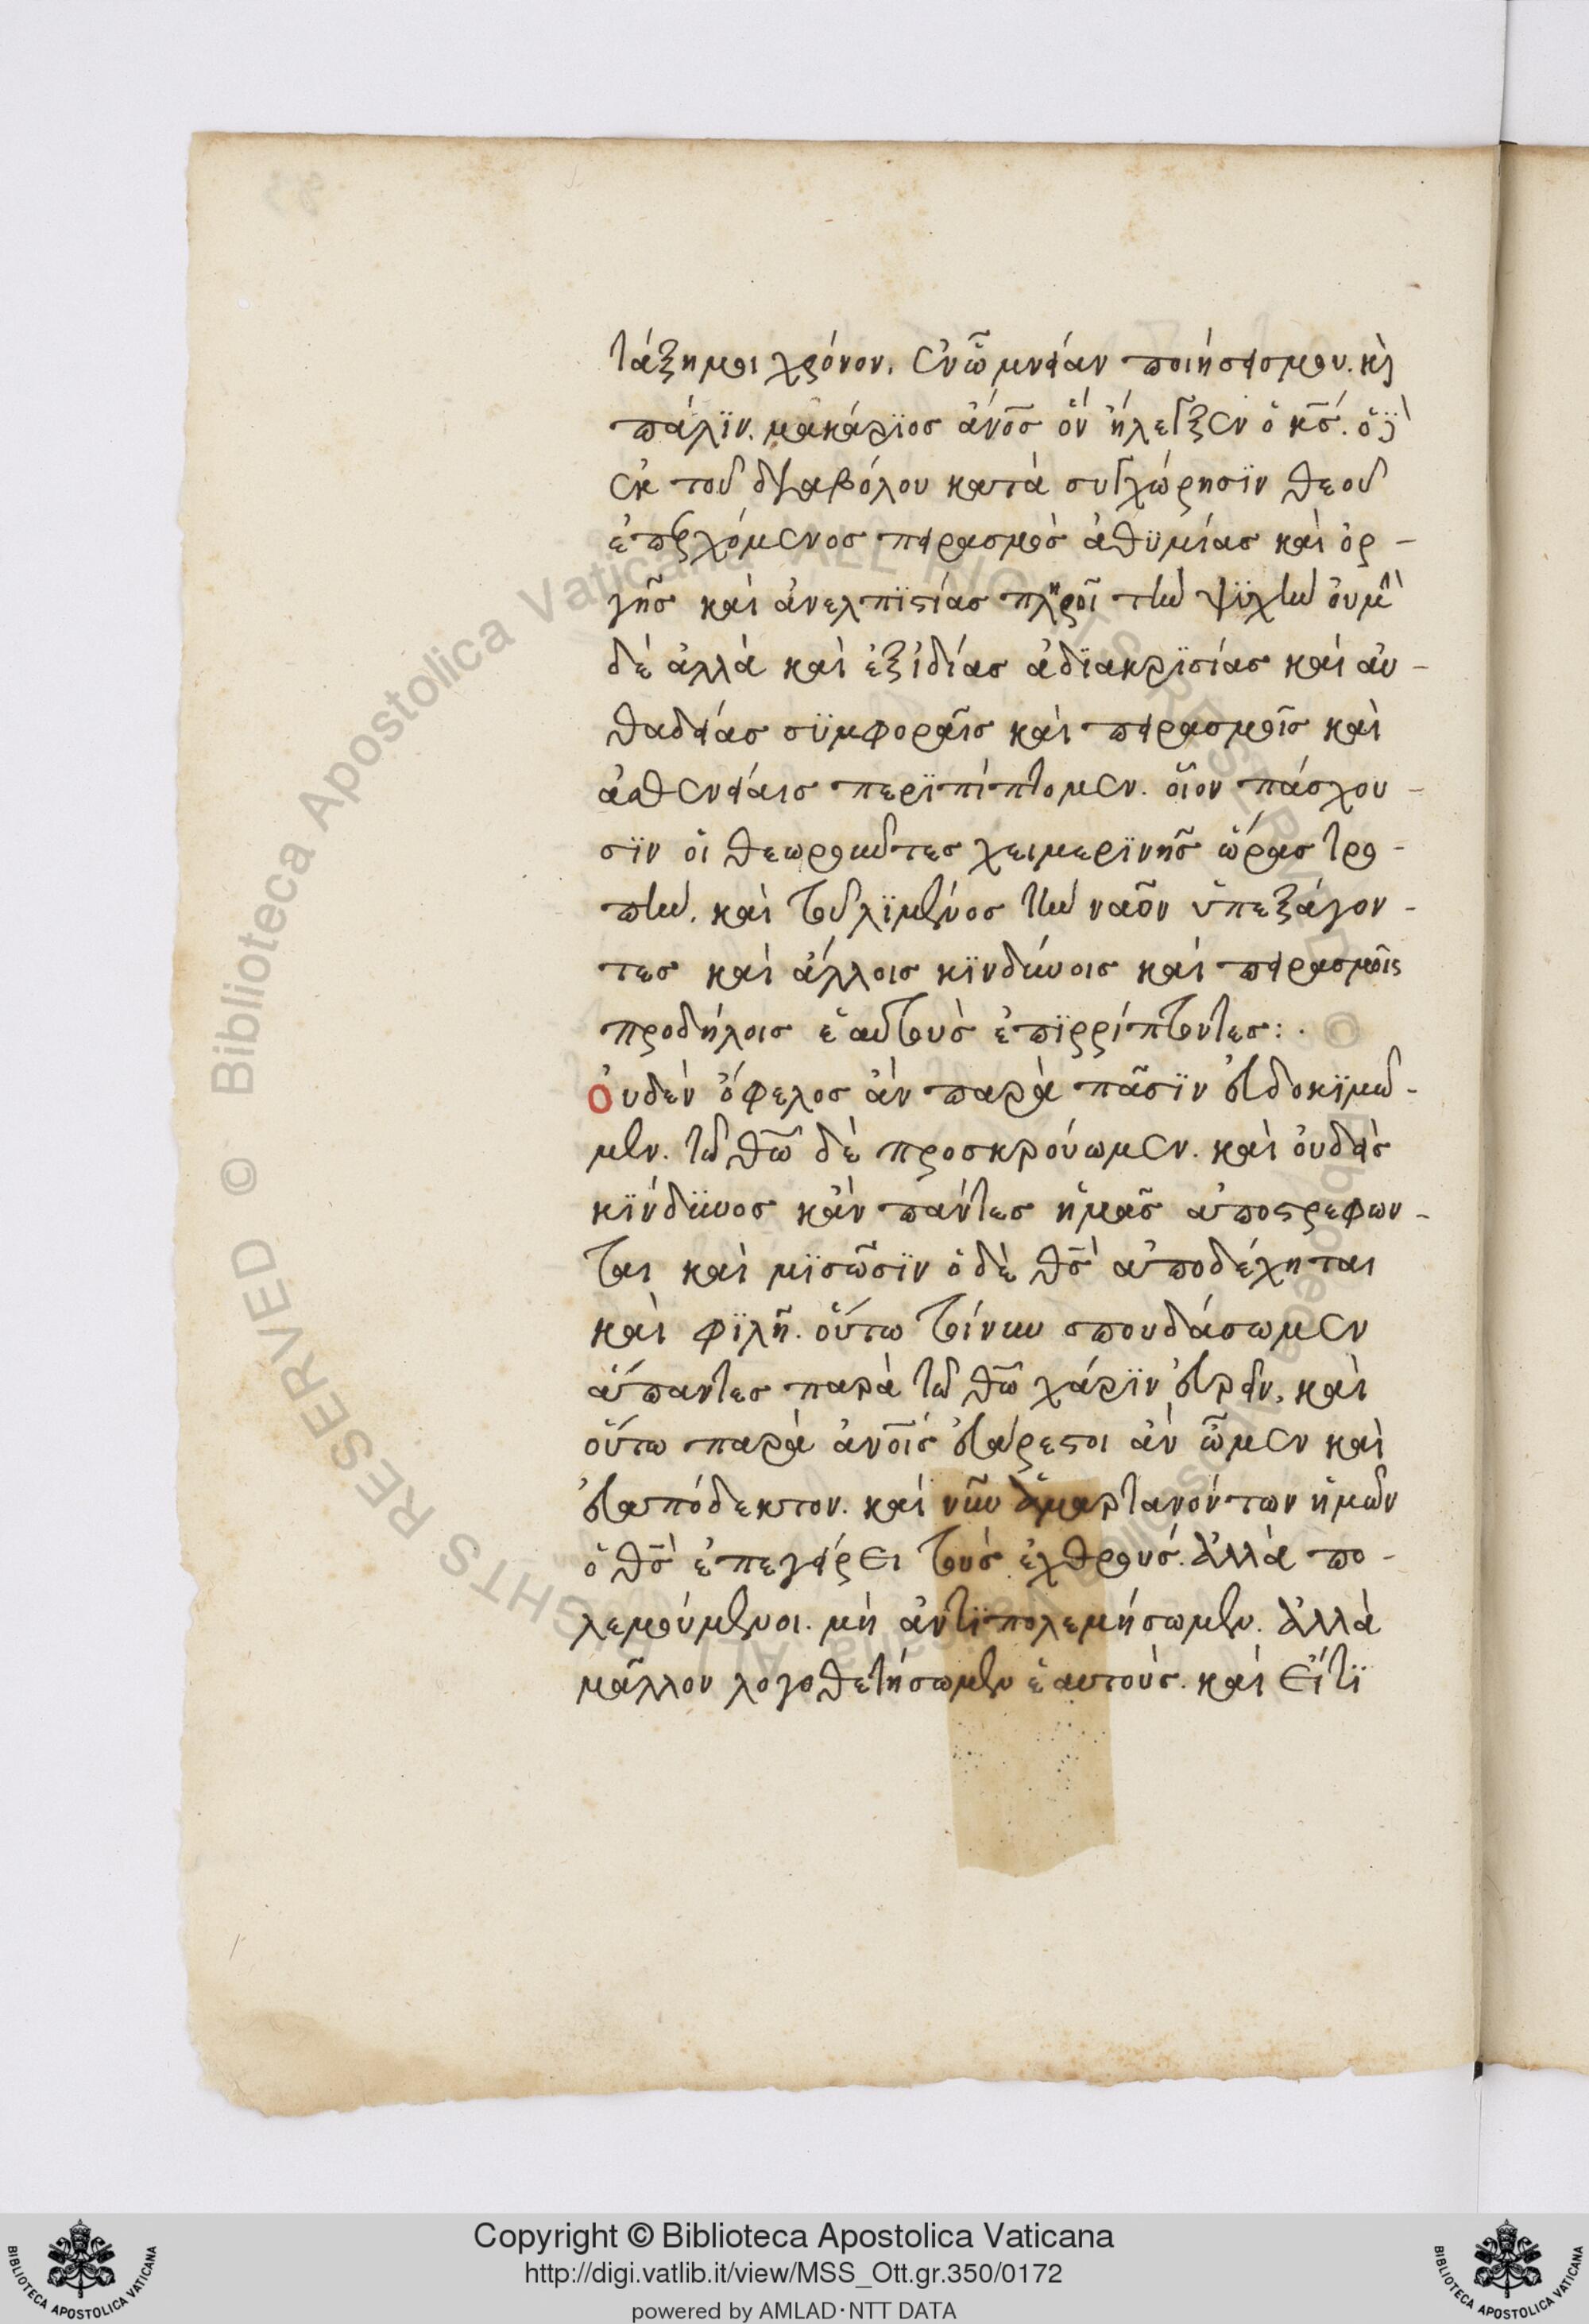 τάξη μοι χρόνον. ἐν ὧ μνείαν ποιήσει μου. κ(αὶ)
πάλϊν. μακάρϊος ἄνο̅ς ὃν ἤλεγξεν ὁ κ̅ς. ὁ
ἐκ τοῦ διαβόλου κατὰ συγχώρησϊν θεοῦ
ἐπερχόμενος πειρασμὸς ἀθϋμίας καὶ ὀρ -
γῆς καὶ ἀνελπϊστίας πληροῖ τὴν ψϋχὴν οὐ μὴ
δὲ ἀλλὰ καὶ ἐξ ἰδίας ἀδϊακρϊσίας καὶ αὐ -
θαδείας σϋμφοραῖς καὶ πειρασμοῖς καὶ
ἀσθενείαις περϊπίπτομεν. οἷον πάσχου -
σϊν οἱ θεωροῦντες χειμερϊνῆς ὥρας τρο -
πὴν. καὶ τοῦ λϊμένος τὴν ναῦν ὑπεξάγον -
τες καὶ ἄλλοις κϊνδύνοις καὶ πειρασμοῖς
προδήλοις ἑαυτοὺς ἐπϊρρίπτοντες: .
Οὐδὲν ὄφελος ἂν παρὰ πᾶσϊν εὐδοκϊμῶ -
μεν. τῶ θ̅ῶ δὲ προσκρούωμεν. καὶ οὐδεὶς
κϊνδϋνος κἂν πάντες ἡμᾶς ἀποστρεφων -
ται καὶ μϊσῶσϊν ὁ δὲ θ̅ς ἀποδέχηται
καὶ φϊλῆ. οὕτω τοίνυν σπουδάσωμεν
ἅπαντες παρὰ τῶ θ̅ῶ χάρϊν εὑρεῖν. καὶ
οὕτω παρὰ ἀνο̅ις εὐάρεστοι ἂν ὦμεν καὶ
εὐαπόδεκτον. καὶ νῦν ἁμαρτανόντων ἡμῶν
ὁ θ̅ς ἐπεγείρει τοὺς ἐχθρούς. ἀλλὰ πο -
λεμούμενοι. μὴ ἀντϊπολεμήσωμεν. ἀλλὰ
μᾶλλον λογοθετήσωμεν ἑαυτούς. καὶ εἴ τϊ
Copyright © Biblioteca Apostolica Vaticana
http://digi.vatlib.it/view/MSS_Ott.gr.350/0172
powered by AMLAD·NTT DATA
BIBLIOTECA APOSTOLICA VATICANA
BIBLIOTECA APOSTOLICA VATICANA
© Biblioteca Apostolica Vaticana ALL RIGHTS RESERVED